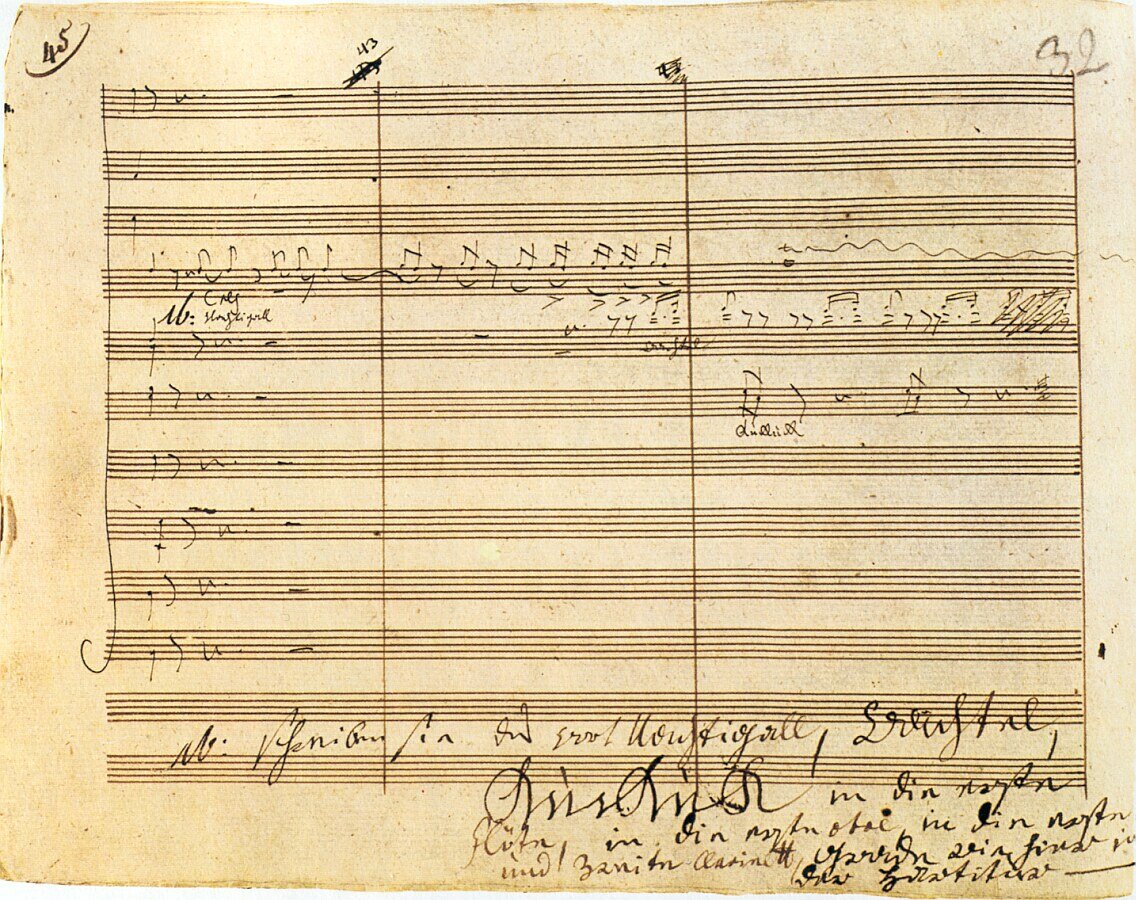 45
43
32
Nb: Nachtigall
Wachtel
Kukuk
Nb: schreiben sie das wort Nachtigall, Wachtel,
KuKuK in die erste
Flöte, in die erste oboe, in die erste
und zweite Clarinett, gerade wie hier in
der Partitur —